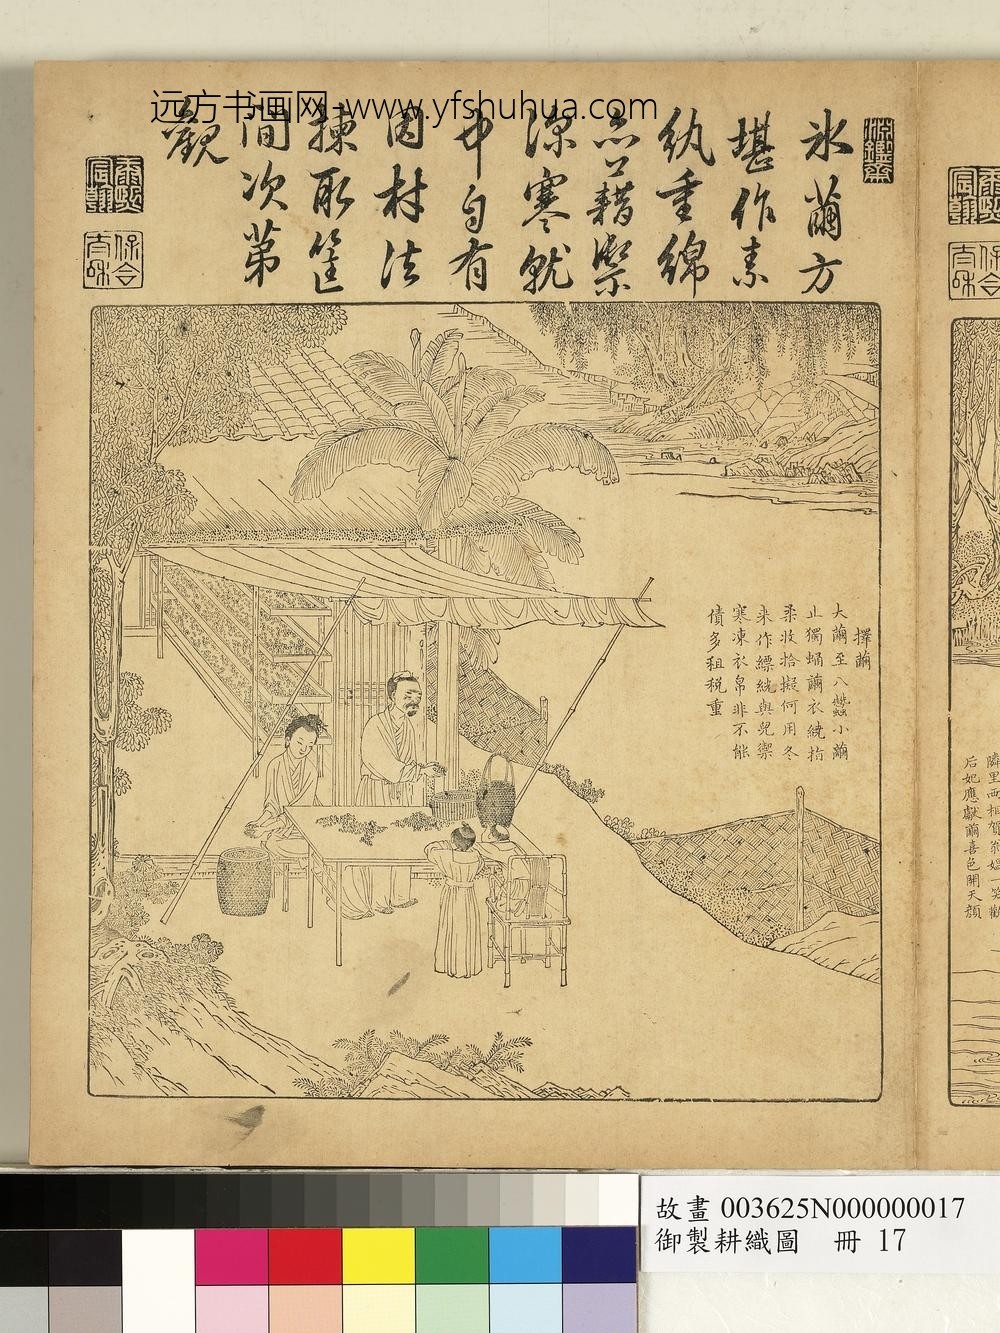 远方书画网-www.yfshuhua.com
淵鑒齋
氷繭方
堪作素
紈重綿
亦藉禦
深寒就
中自有
因材法
揀取筐
間次第
觀
康熙宸翰
保合太和
擇繭
大繭至八蠶小繭
止獨蛹繭衣繞指
柔收拾擬何用冬
来作縹絖與兒禦
寒凍衣帛非不能
債多租稅重
隣里兩相賀翁媼一笑歡
后妃應獻繭喜色開天顏
故畫 003625N000000017
御製耕織圖 冊 17